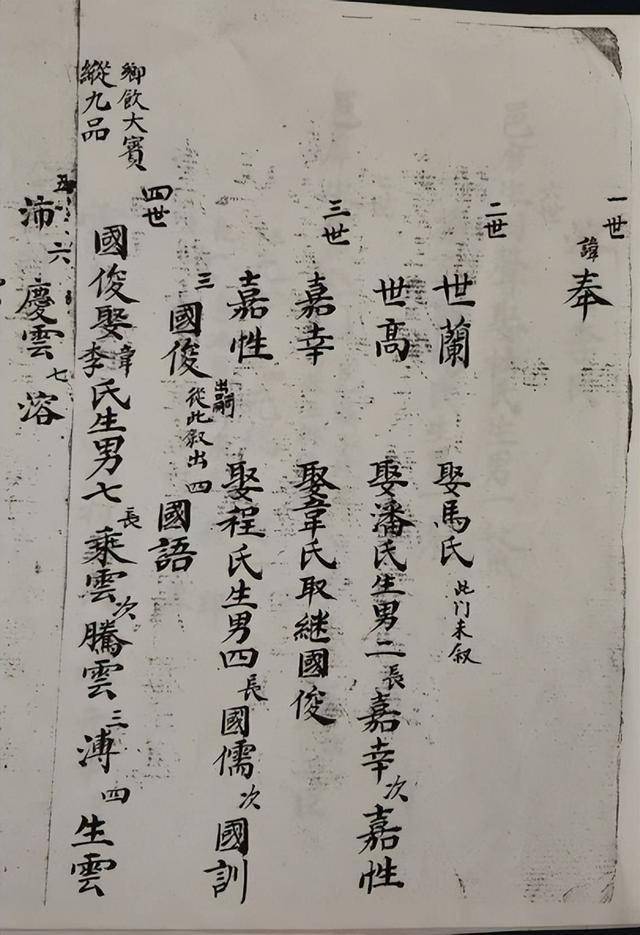 一世
諱奉
二世
世蘭 娶馬氏 此门未叙
世高 娶潘氏生男二 長嘉幸 次嘉性
三世
嘉幸 娶韋氏取継國俊
嘉性 娶程氏生男四 長國儒 次國訓
三國俊 出嗣 從此叙出 四國語
四世
鄉飲大賓
縱九品
國俊娶韋李氏生男七 長乘雲 次騰雲 三溥 四生雲
五沛 六慶雲 七溶